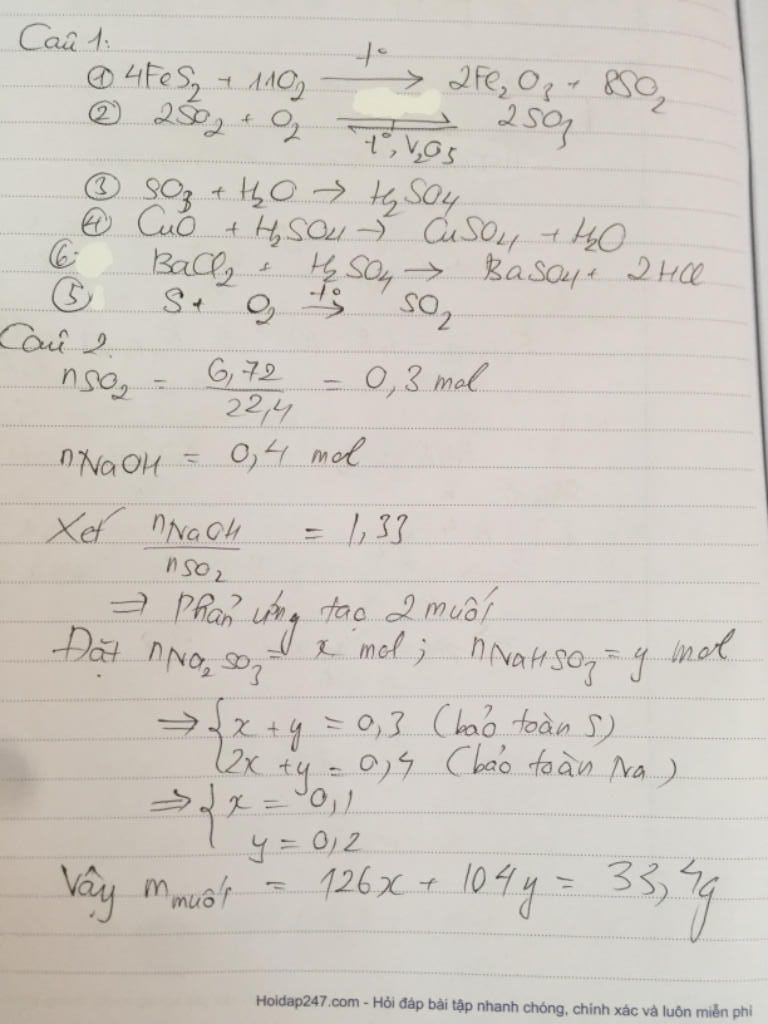 Câu 1:
① 4FeS₂ + 11O₂ —t°→ 2Fe₂O₃ + 8SO₂
② 2SO₂ + O₂ ⇌ 2SO₃
t°, V₂O₅
③ SO₃ + H₂O → H₂SO₄
④ CuO + H₂SO₄ → CuSO₄ + H₂O
⑥ BaCl₂ + H₂SO₄ → BaSO₄ + 2HCl
⑤ S + O₂ —t°→ SO₂
Câu 2.
nSO₂ = 6,72/22,4 = 0,3 mol
nNaOH = 0,4 mol
Xét nNaOH/nSO₂ = 1,33
⇒ Phản ứng tạo 2 muối
Đặt nNa₂SO₃ = x mol ; nNaHSO₃ = y mol
⇒ { x + y = 0,3 (bảo toàn S)
2x + y = 0,4 (bảo toàn Na)
⇒ { x = 0,1
y = 0,2
Vậy m muối = 126x + 104y = 33,4g
Hoidap247.com - Hỏi đáp bài tập nhanh chóng, chính xác và luôn miễn phí